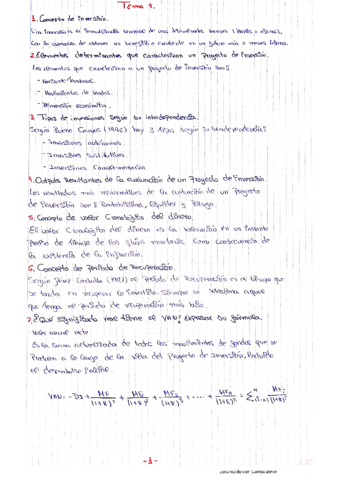 Tema 4.
1. Concepto de Inversión.
Una inversión es inmovilizar
con la esperanza de obtener un beneficio excedente en un futuro más o menos lejano.
2. Elementos determinantes que caracterizan un Proyecto de Inversión.
Los elementos que caracterizan a un proyecto de Inversión son:
- Horizonte temporal.
- Movimientos de fondos.
- Dimensión económica.
3. Tipos de inversiones según su interdependencia.
Según Bueno Campos hay 3 tipos según su interdependencia:
- Inversiones autónomas.
- Inversiones sustitutivas
- Inversiones Complementarias.
4. Outputs Resultantes de la evaluación de un Proyecto de Inversión.
Los resultados más representativos de la evaluación de un Proyecto
de Inversión son: Rentabilidad, Liquidez y Riesgo.
5. Concepto de valor Cronológico del dinero.
El valor Cronológico del dinero es la valoración en un instante
preciso de tiempo de los flujos monetarios. Como consecuencia de
la existencia de la Inflación.
6. Concepto de Período de Recuperación.
Según el Período de Recuperación es el tiempo que
se tarda en recuperar la Inversión. Siempre se selecciona aquel
que tenga el período de recuperación más bajo.
7. ¿Qué significado real tiene el VAN? Expresar su fórmula.
Valor actual neto
Es la suma actualizada de todos los movimientos de fondos que se
Producen a lo largo de la vida del Proyecto de Inversión, incluido
el desembolso inicial.
- 1 -